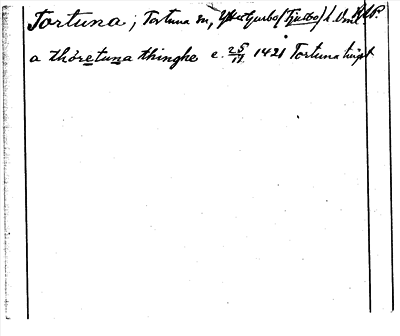 Tortuna; Tortuna sn, Yttertjurbo (Tjurbo) h. Vm
a thóretuna thinghe c. 25/11 1421 Tortuna tingst